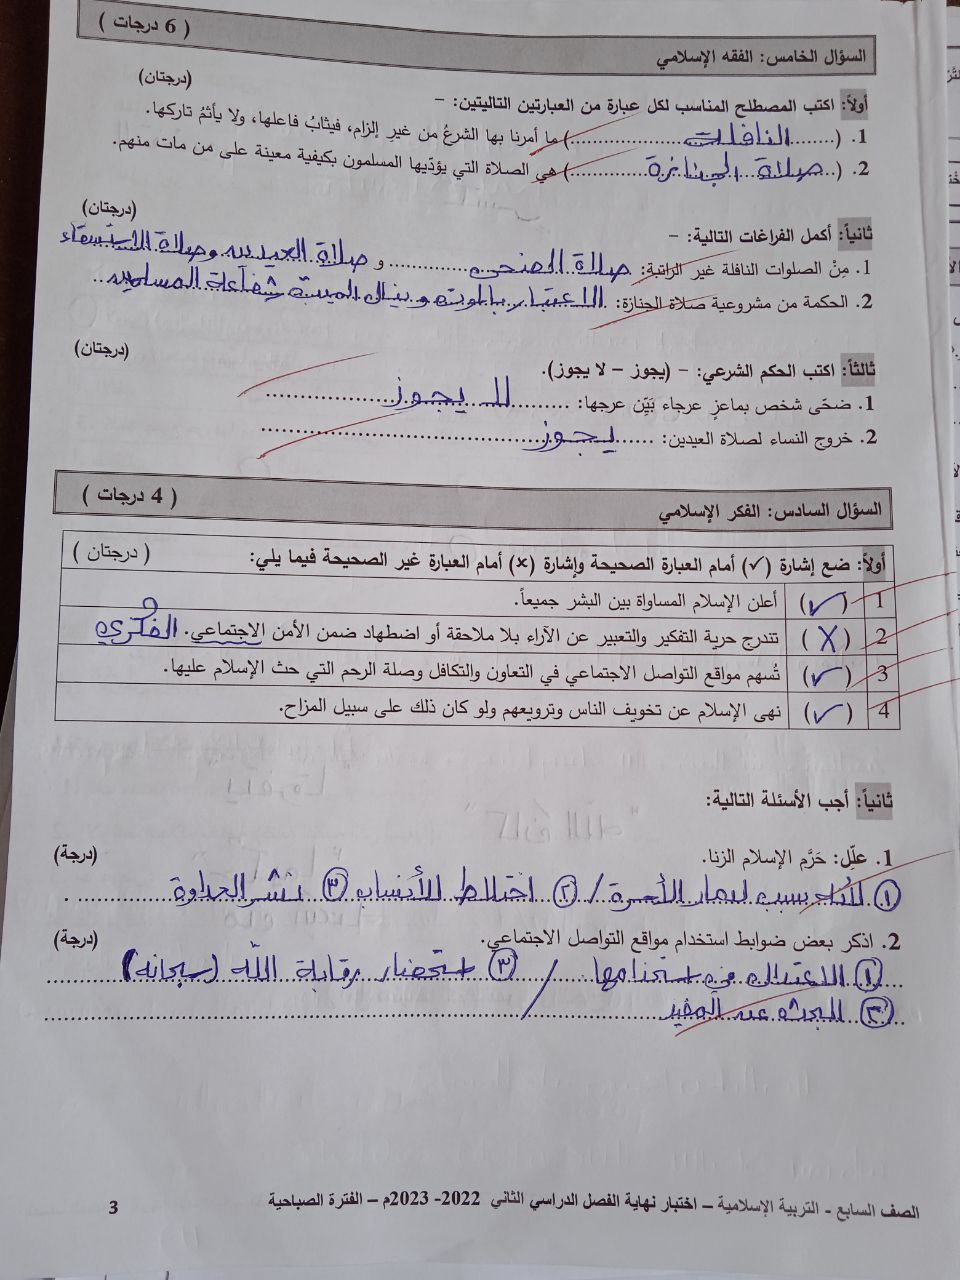 السؤال الخامس: الفقه الإسلامي ( 6 درجات )
أولاً: اكتب المصطلح المناسب لكل عبارة من العبارتين التاليتين: – (درجتان)
1. (النافلة) ما أمرنا بها الشرعُ من غيرِ إلزام، فيثابُ فاعلها، ولا يأثمُ تاركها.
2. (صلاة الجنازة) هي الصلاة التي يؤدّيها المسلمون بكيفية معينة على من مات منهم.
ثانياً: أكمل الفراغات التالية: – (درجتان)
1. مِنْ الصلوات النافلة غير الراتبة: صلاة الضحى و صلاة العيدين وصلاة الاستسقاء
2. الحكمة من مشروعية صلاة الجنازة: الاعتبار بالموت وينال الميت شفاعة المسلمين
ثالثاً: اكتب الحكم الشرعي: – (يجوز – لا يجوز). (درجتان)
1. ضحّى شخص بماعزٍ عرجاء بَيِّن عرجها: لا يجوز
2. خروج النساء لصلاة العيدين: يجوز
السؤال السادس: الفكر الإسلامي ( 4 درجات )
أولاً: ضع إشارة (✓) أمام العبارة الصحيحة وإشارة (×) أمام العبارة غير الصحيحة فيما يلي: ( درجتان )
1 (✓) أعلن الإسلام المساواة بين البشر جميعاً.
2 (X) تندرج حرية التفكير والتعبير عن الآراء بلا ملاحقة أو اضطهاد ضمن الأمن الاجتماعي. الفكري
3 (✓) تُسهم مواقع التواصل الاجتماعي في التعاون والتكافل وصلة الرحم التي حث الإسلام عليها.
4 (✓) نهى الإسلام عن تخويف الناس وترويعهم ولو كان ذلك على سبيل المزاح.
ثانياً: أجب الأسئلة التالية:
1. علِّل: حَرَّم الإسلام الزنا. (درجة)
① لأنه يسبب دمار الأسرة / ② اختلاط الأنساب ③ نشر العداوة
2. اذكر بعض ضوابط استخدام مواقع التواصل الاجتماعي. (درجة)
① الاعتدال في استخدامها / ③ استحضار رقابة الله (سبحانه)
② البحث عن المفيد /
الصف السابع - التربية الإسلامية – اختبار نهاية الفصل الدراسي الثاني 2022- 2023م – الفترة الصباحية
3